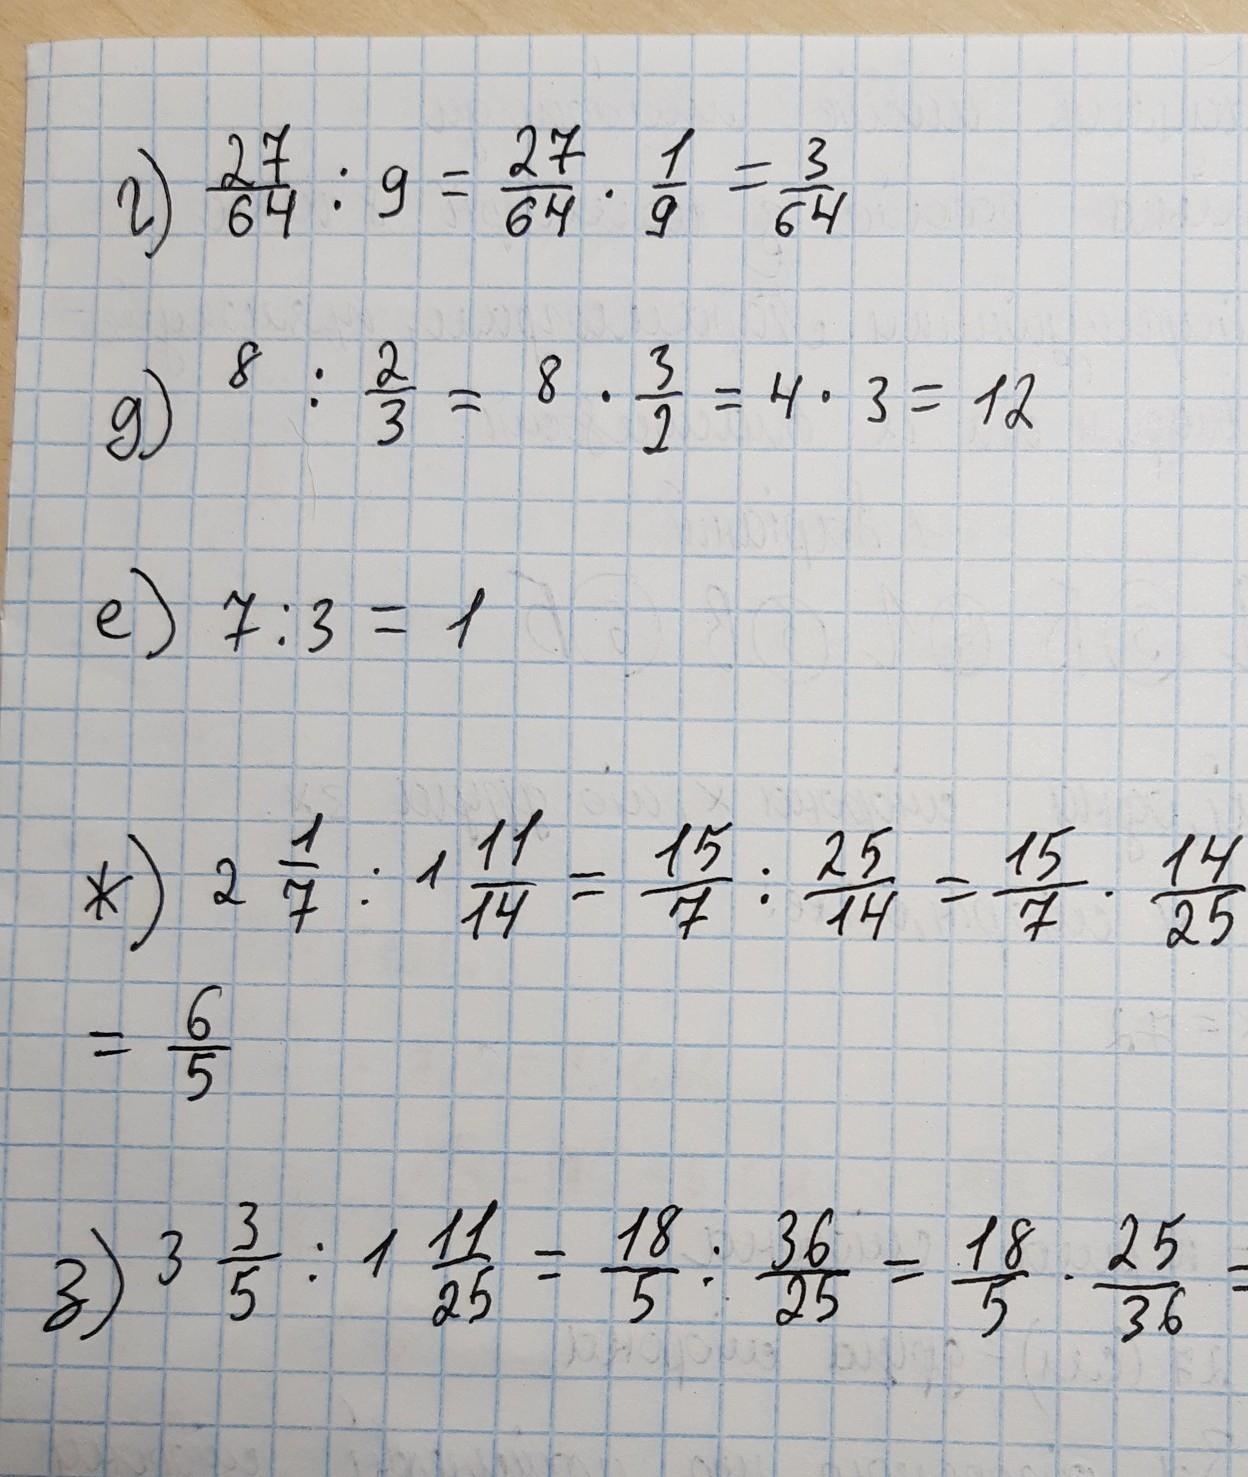 г) 27/64 : 9 = 27/64 · 1/9 = 3/64
д) 8 : 2/3 = 8 · 3/2 = 4 · 3 = 12
е) 7 : 3 = 1
ж) 2 1/7 : 1 11/14 = 15/7 : 25/14 = 15/7 · 14/25
= 6/5
з) 3 3/5 : 1 11/25 = 18/5 : 36/25 = 18/5 · 25/36 =